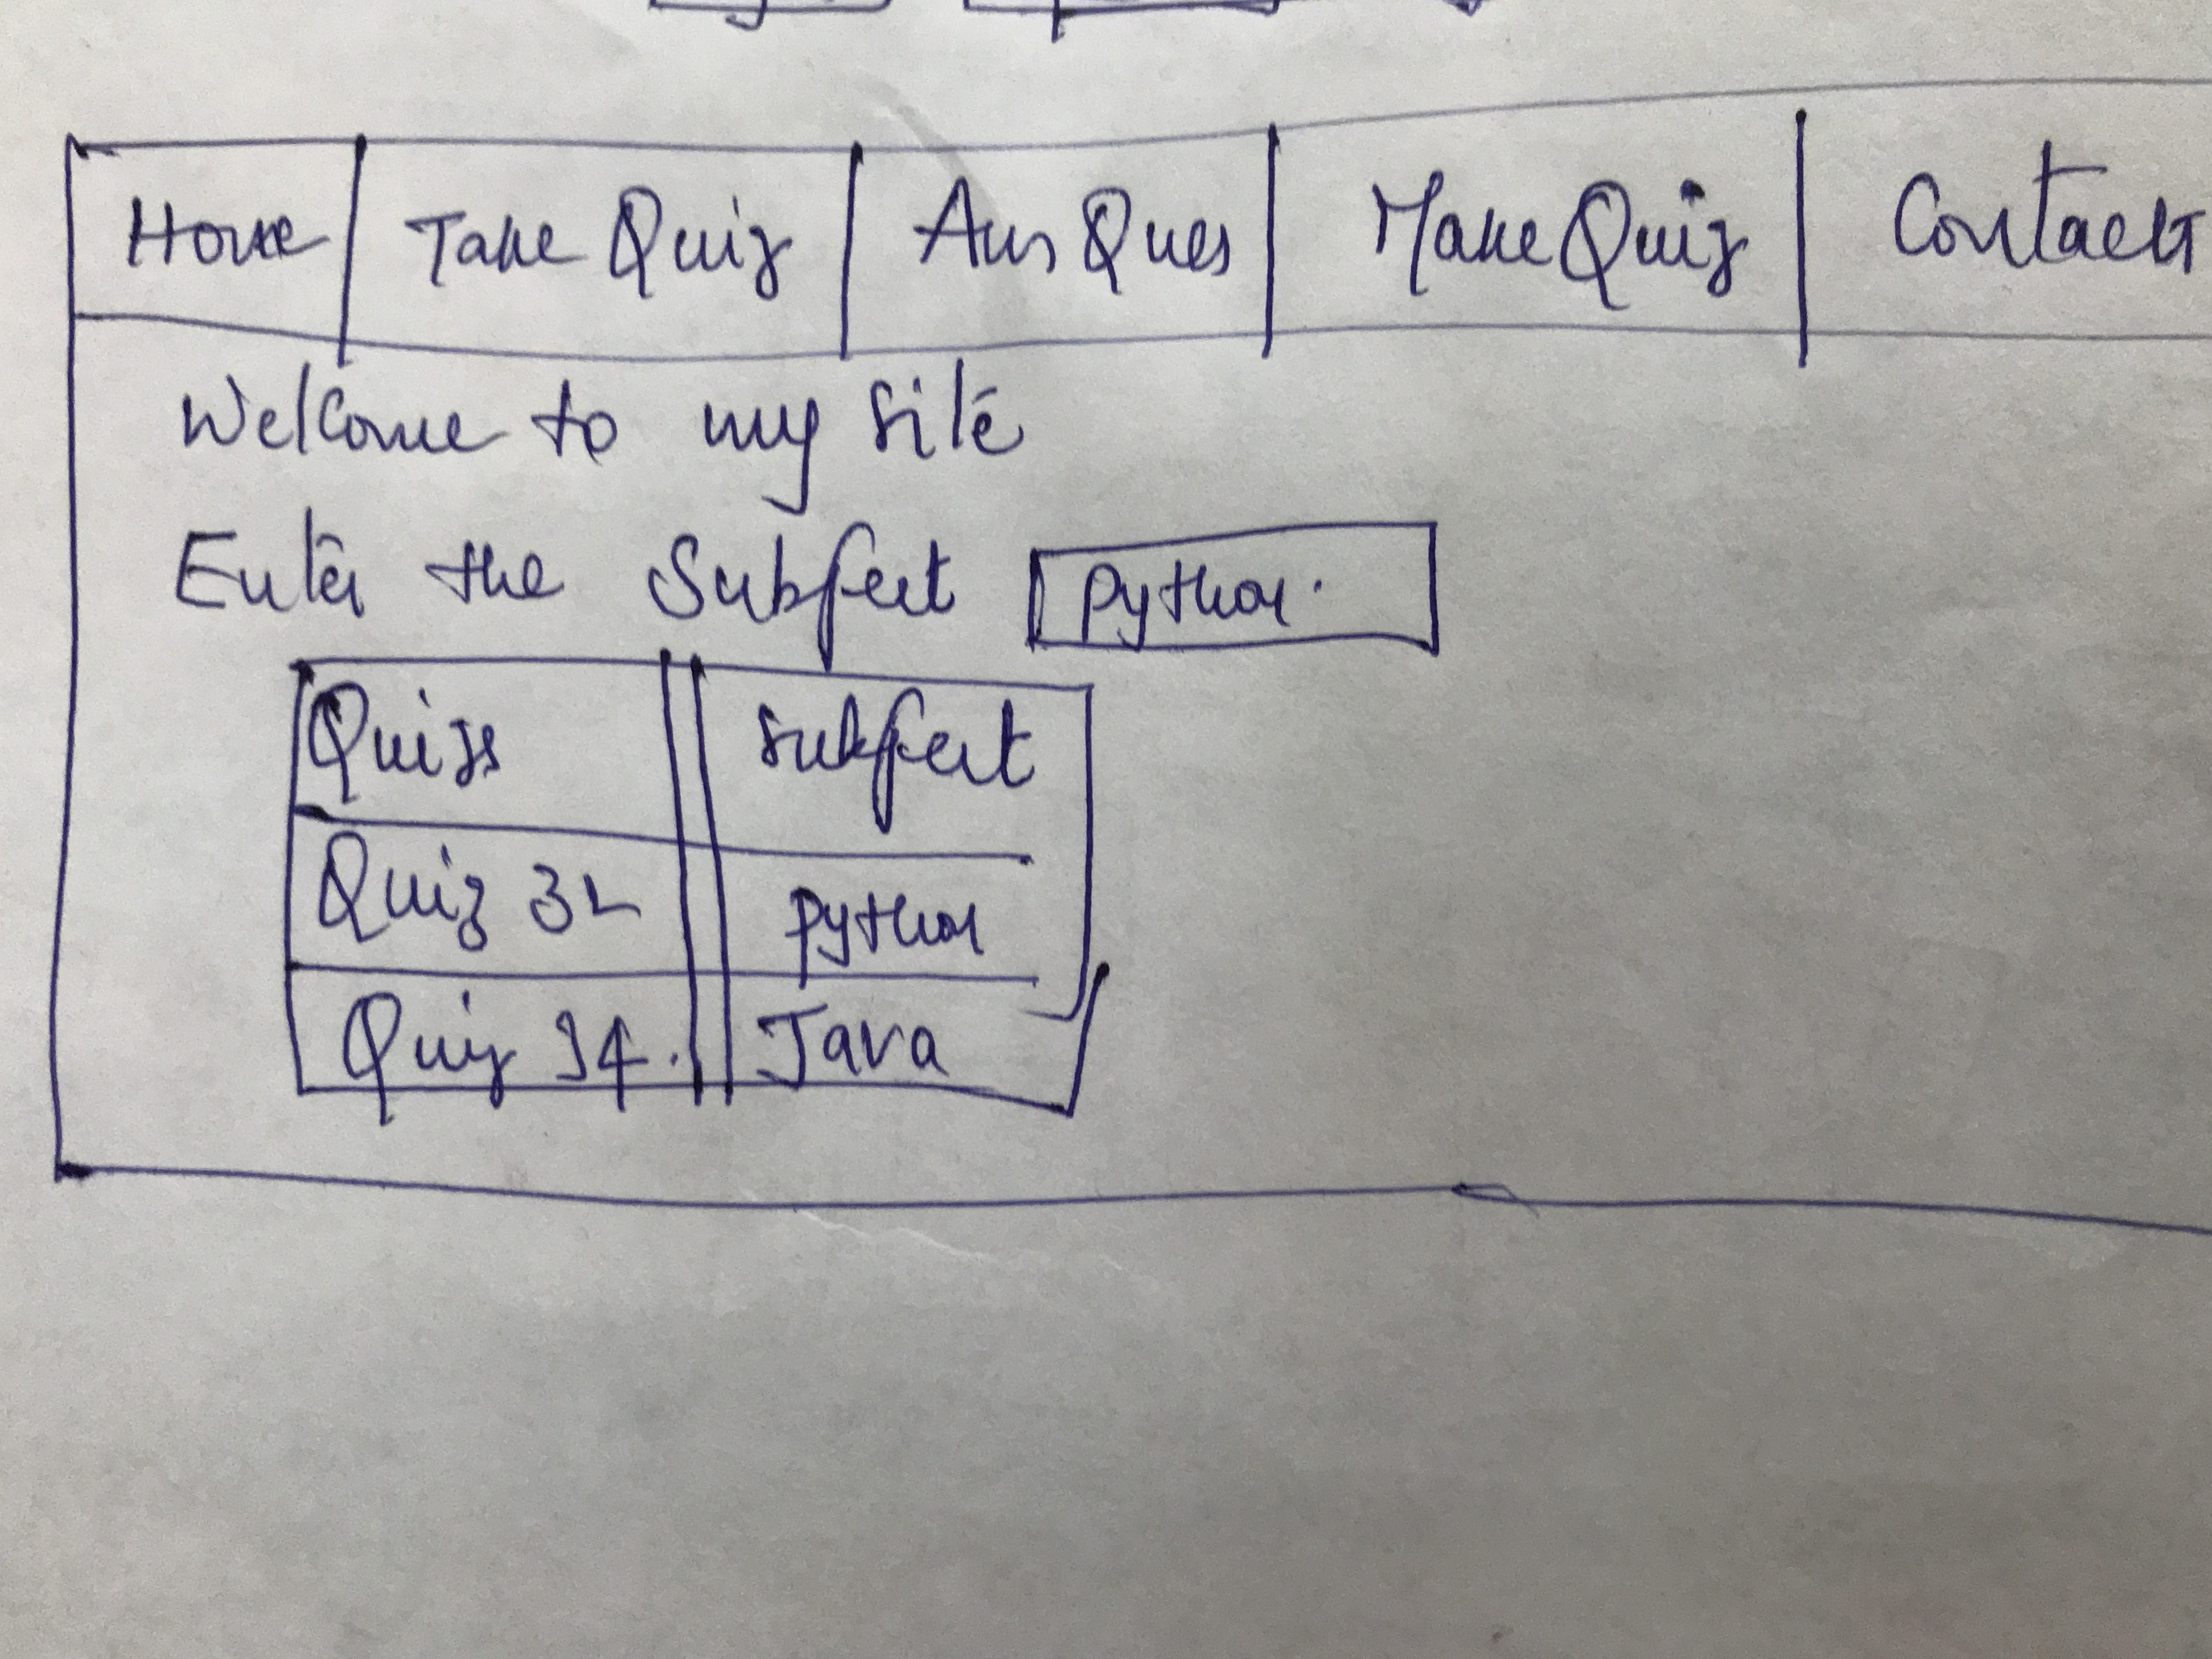 Home Take Quiz Ans Ques Make Quiz Contact
Welcome to my site
Enter the Subject Python.
Quizs Subject
Quiz 32 Python
Quiz 34. Java